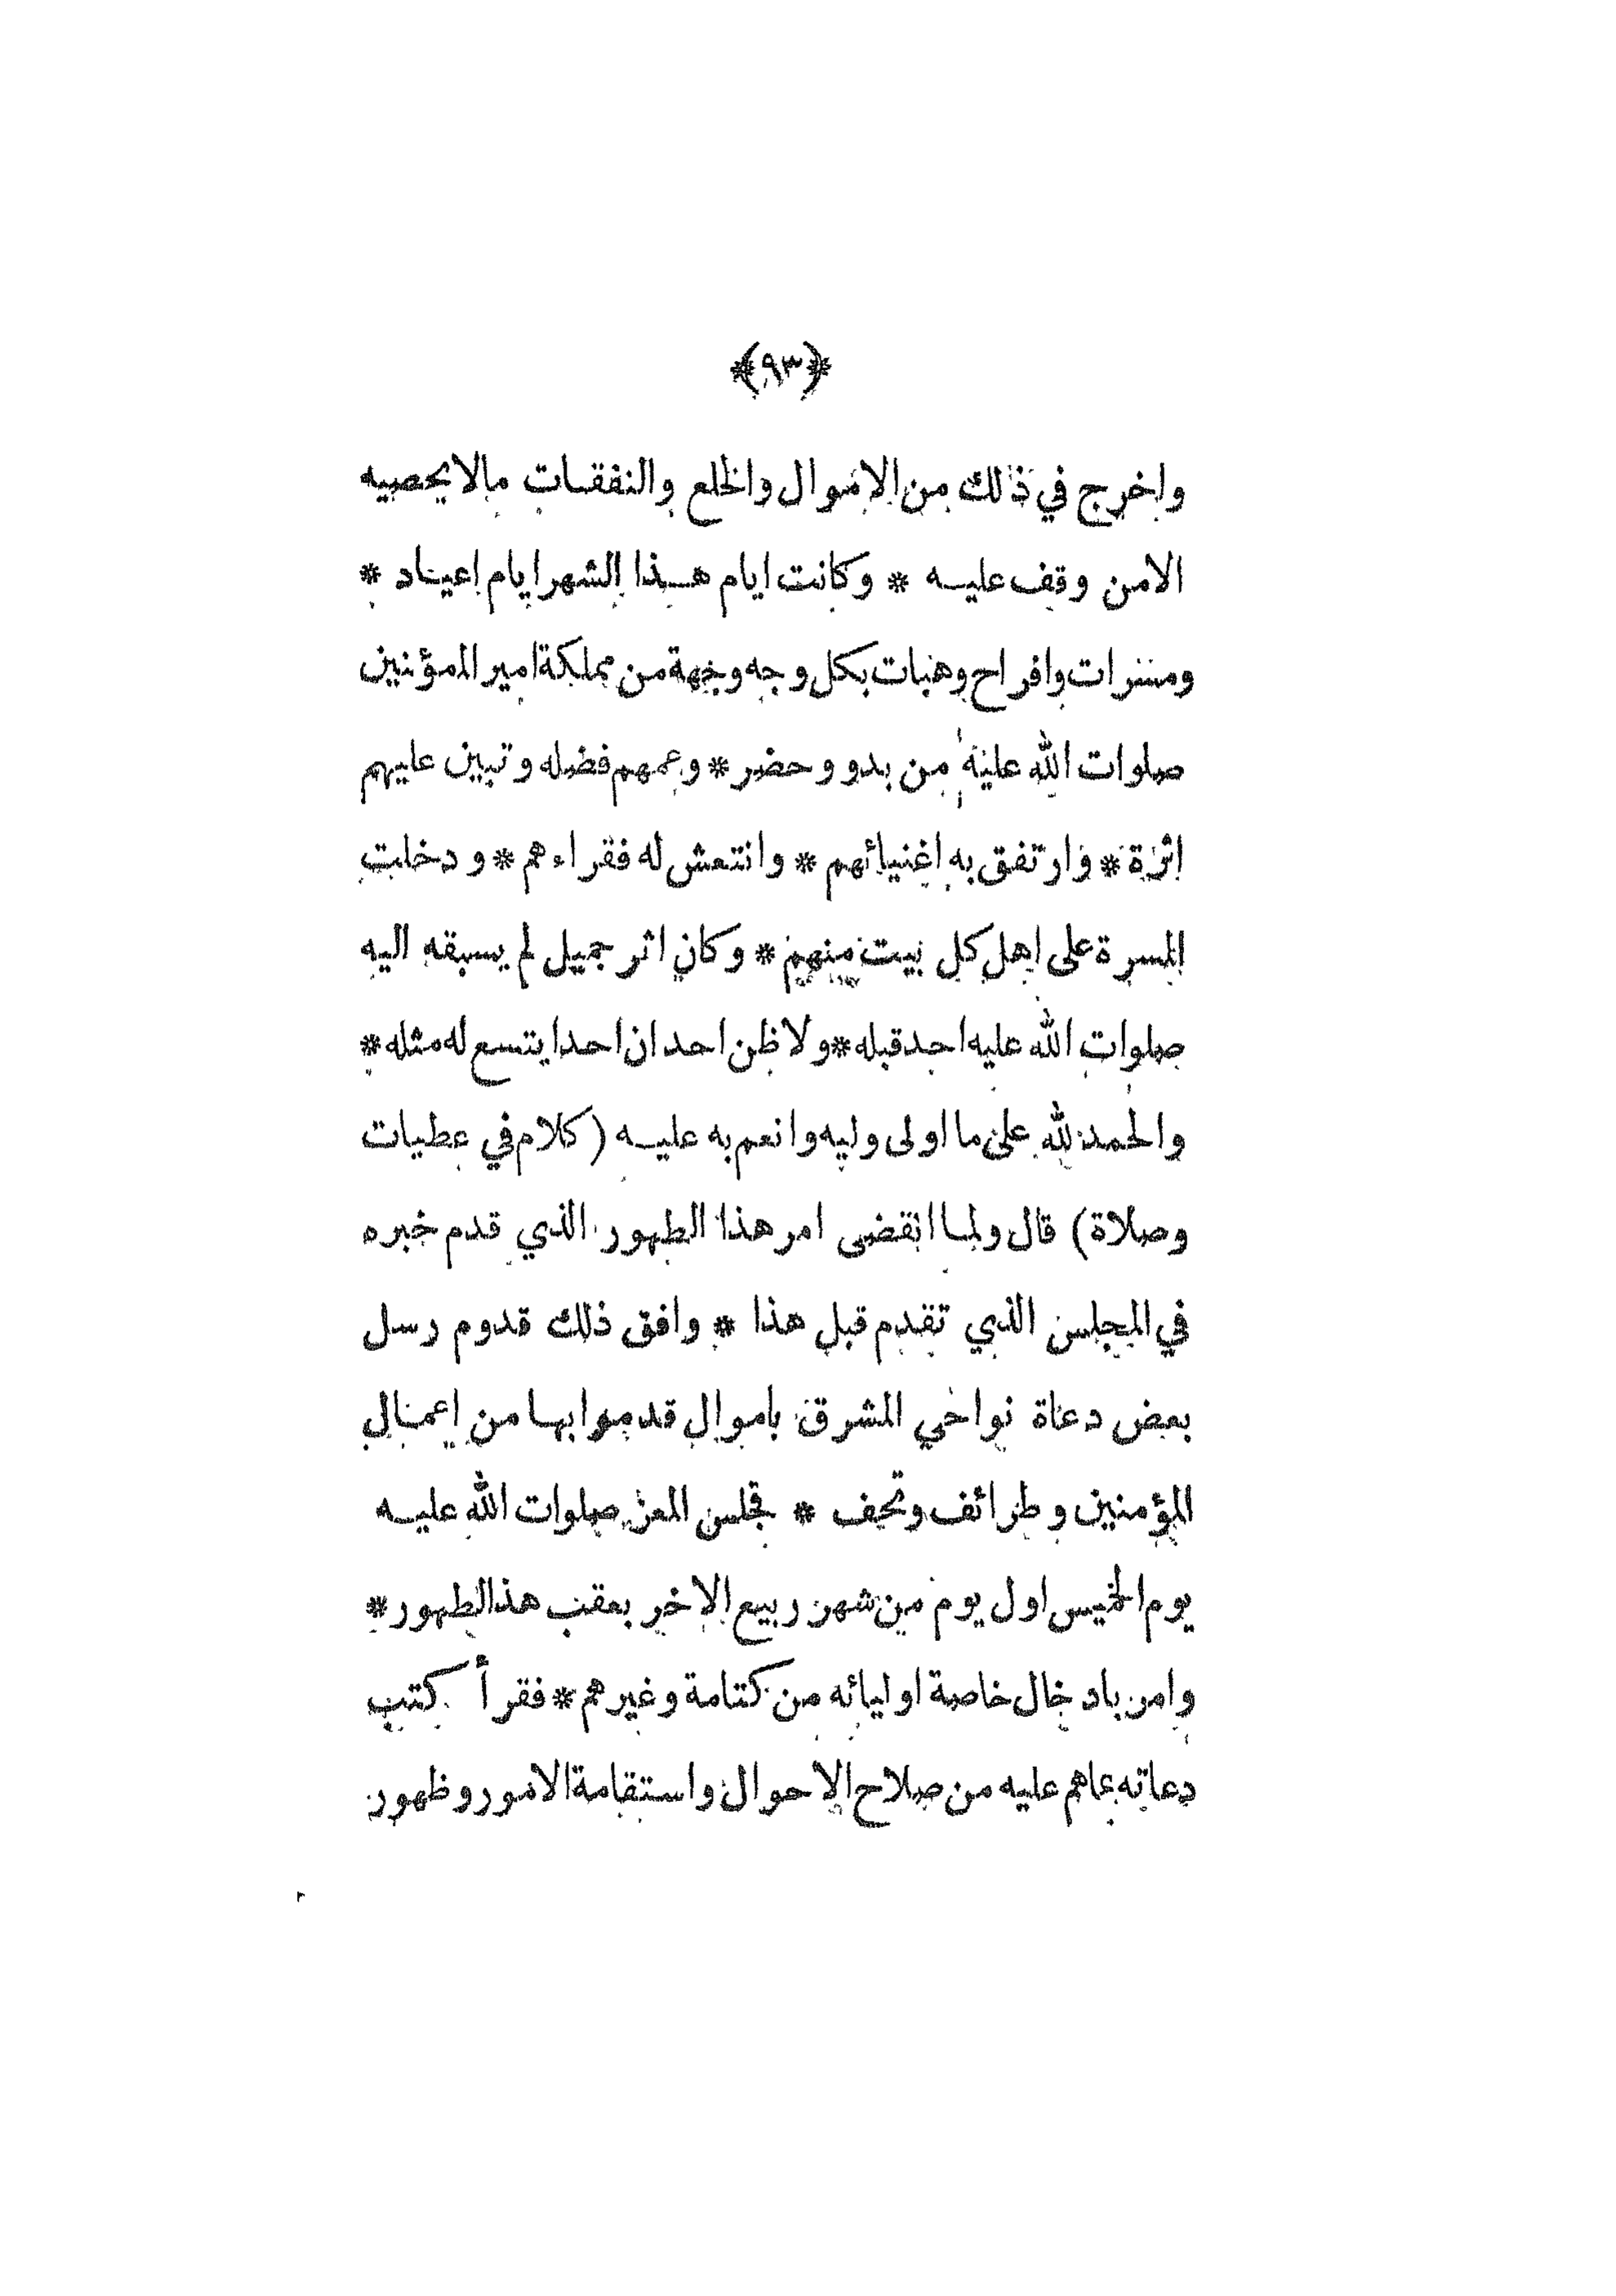 ﴿٩٣﴾
واخرج في ذلك من الاموال والخلع والنفقات مالا يحصيه
الا من وقف عليه * وكانت ايام هذا الشهر ايام اعياد *
ومسرات وافراح وهبات بكل وجه وجهة من مملكة امير المؤمنين
صلوات الله عليه من بدو وحضر * وعمهم فضله وتبين عليهم
اثرة * وارتفق به اغنيائهم * وانتعش له فقراءهم * ودخلت
المسرة على اهل كل بيت منهم * وكان اثر جميل لم يسبقه اليه
صلوات الله عليه احد قبله * ولا ظن احد ان احدا يتسع له مثله *
والحمد لله على ما اولى وليه وانعم به عليه (كلام في عطيات
وصلاة) قال ولما انقضى امر هذا الطهور الذي قدم خبره
في المجلس الذي تقدم قبل هذا * وافق ذلك قدوم رسل
بعض دعاة نواحي المشرق باموال قدموا بها من اعمال
المؤمنين وطرائف وتحف * فجلس المعز صلوات الله عليه
يوم الخميس اول يوم من شهر ربيع الاخر بعقب هذا الطهور *
وامر بادخال خاصة اوليائه من كتامة وغيرهم * فقرأ كتب
دعاته بماهم عليه من صلاح الاحوال واستقامة الامور وظهور